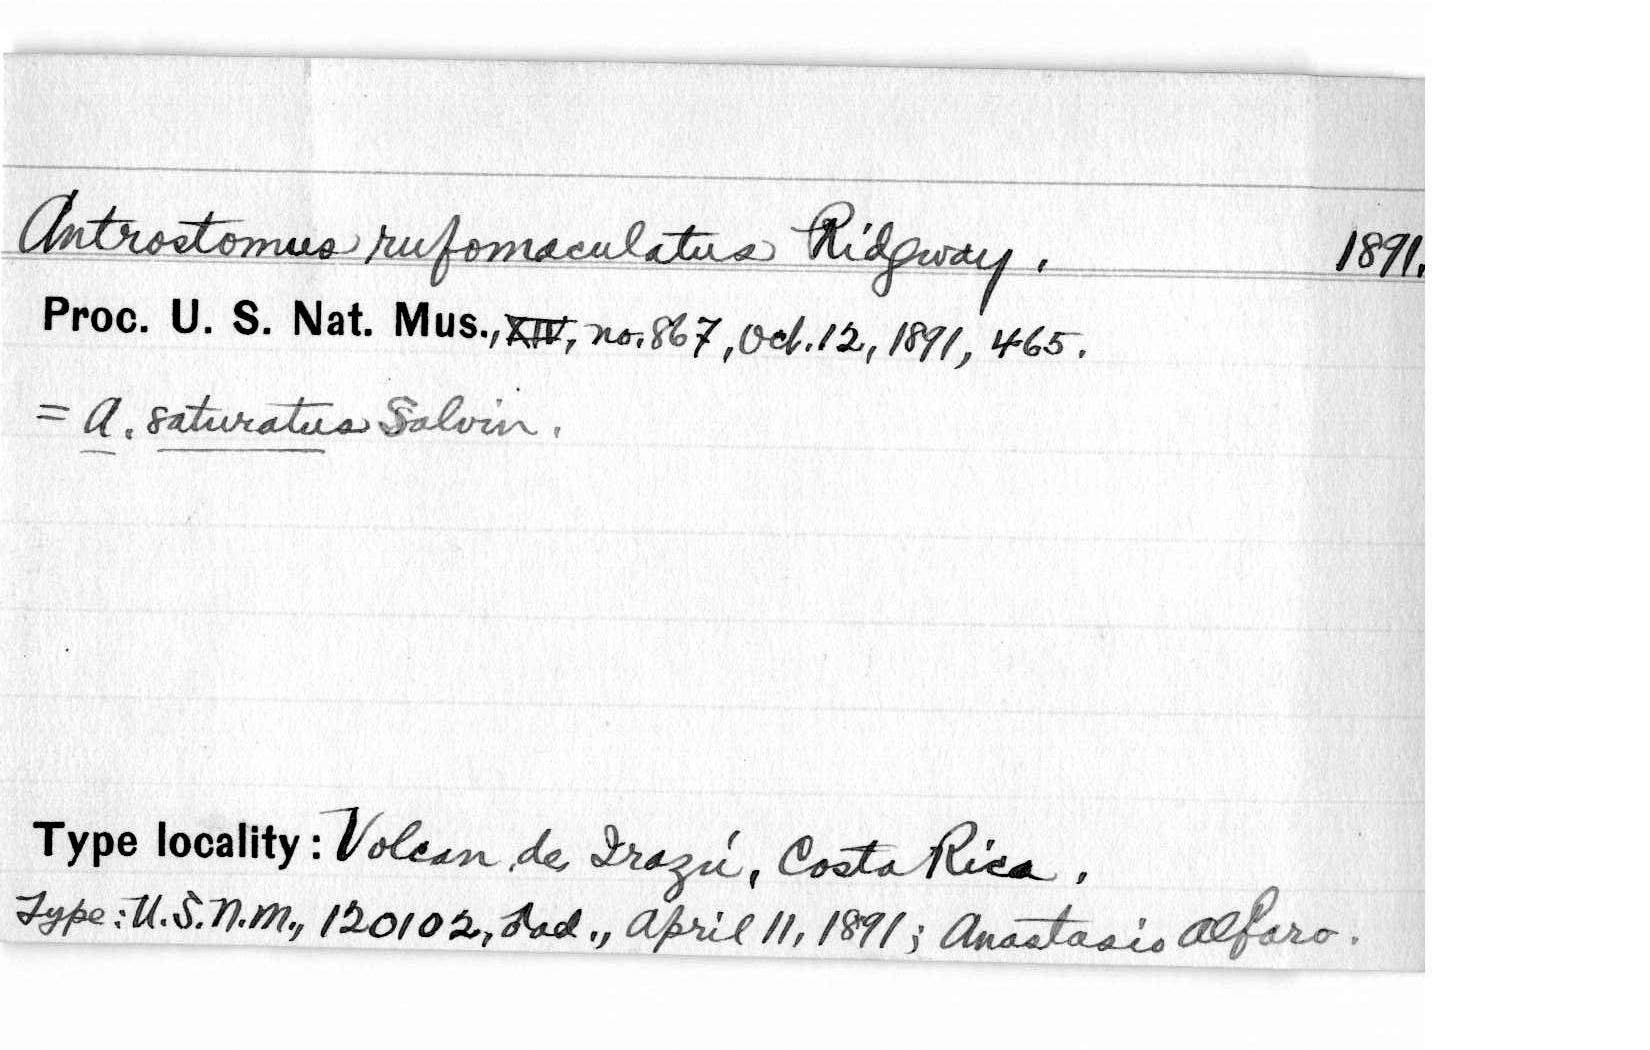 Antrostomus rufomaculatus Ridgway. 1891.
Proc. U. S. Nat. Mus., XIV, no. 867, Oct. 12, 1891, 465.
= A. saturatus Salvin.
Type locality: Volcan de Irazú, Costa Rica.
Type: U.S.N.M., 120102, ♂ad., April 11, 1891; Anastasio Alfaro.